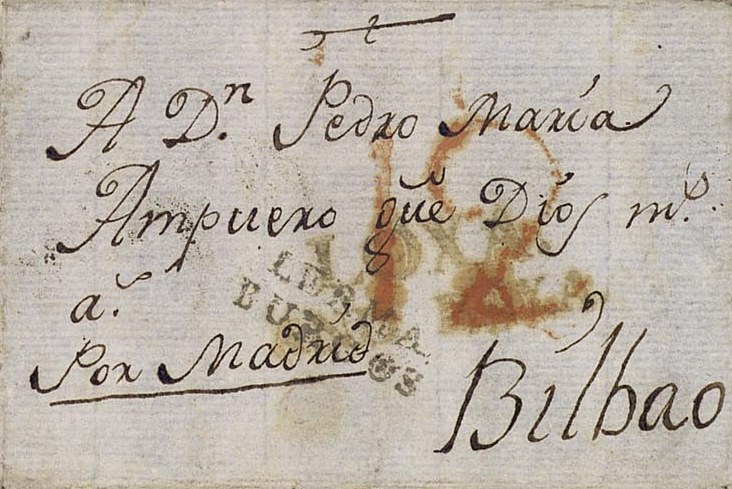 A D.n Pedro María
Ampuero que Dios m.s
a.s
Por Madrid
Bilbao
12
LERMA
BURGOS